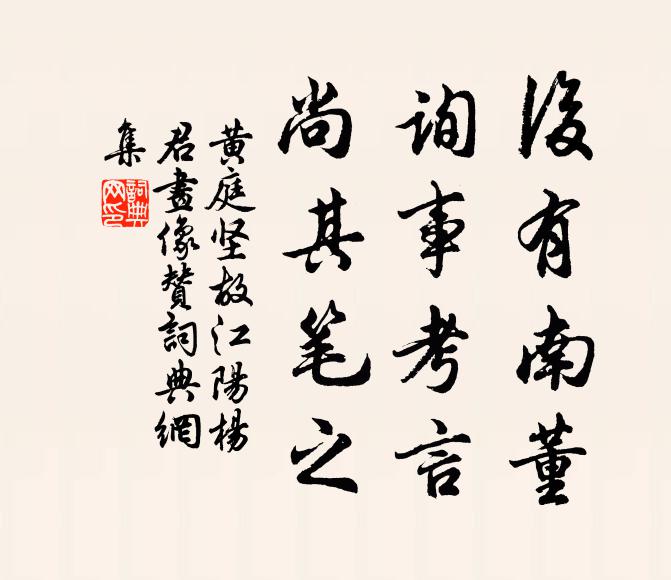 後有南董
询事考言
尚其笔之
黄庭坚故江陽楊
君畫像贊詞典網
集
詞典网印